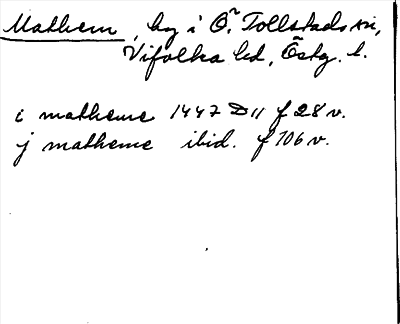 Mathem, by i Ö. Tollstads sn,
Vifolka hd, Östg. l.
i matheme 1447 D 11 f 28 v.
j matheme ibid. f 106 v.